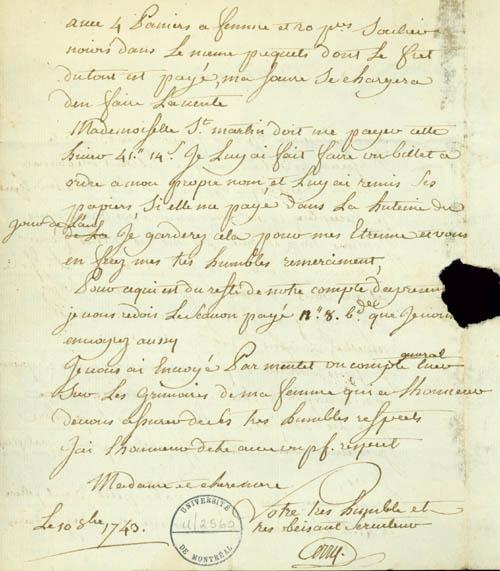 avec 4 Paniers a femme et 20 pres Soulier
noirs dans Le meme paquets dont Le fret
du tout est payé, ma Soeure Se chargera
d'en faire La vente
Mademoiselle St. martin doit me payer cette
hiver 41.# 14.s Je Luy ai fait faire un billet a
ordre a mon propre nom et Luy ai remis Ses
papiers Si elle me paye dans La huteine du
jour de L'an
de La Je garderez cela pour mes Etrenne et vous
en ferez mes tres humbles remerciment,
Pour ce qui est du reste de notre compte
je vous redois Le Savon payé 8. que Je vous
envoyez aussy
Je vous ai Envoyé Par mentet un compte
general
Sur Les Grimoires de ma femme qui a L'honneur
de vous assurer de Ses tres humbles respects
J'ai L'honneur detre avec un prf. respect
Madame et chere mere
Votre tres humble et
tres obeisant Serviteur
Le 10 8bre 1743.
UNIVERSITÉ
U/2560
DE MONTRÉAL